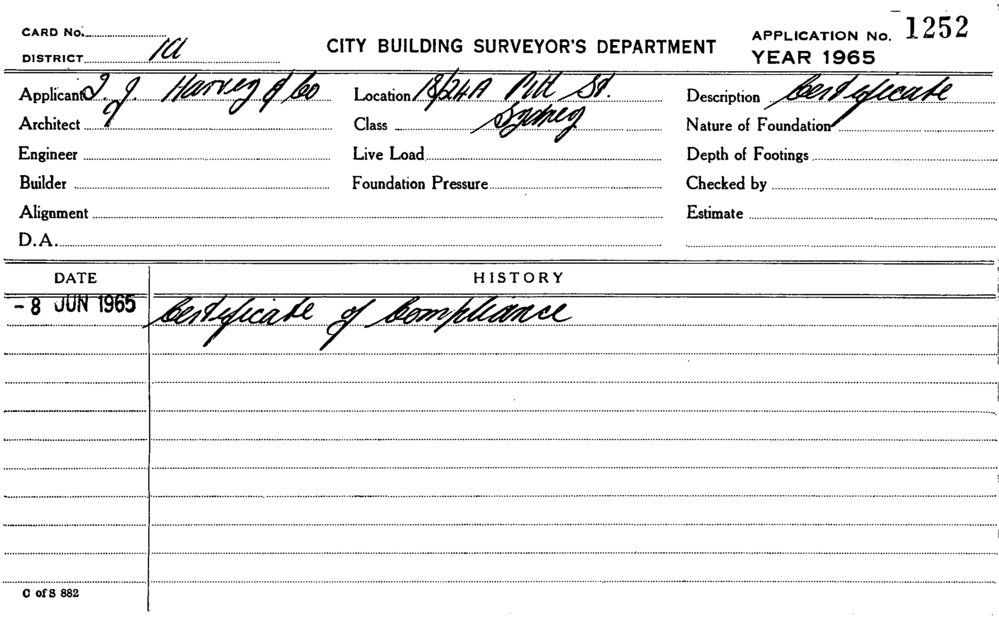 CARD No.
CITY BUILDING SURVEYOR'S DEPARTMENT
APPLICATION No. 1252
DISTRICT 1a
YEAR 1965
Applicant J. Harvey & Co
Location 18/24A Pitt St.
Description Certificate
Architect
Class Sydney
Nature of Foundation
Engineer
Live Load
Depth of Footings
Builder
Foundation Pressure
Checked by
Alignment
Estimate
D.A.
DATE
HISTORY
- 8 JUN 1965 Certificate of Compliance
C of S 882